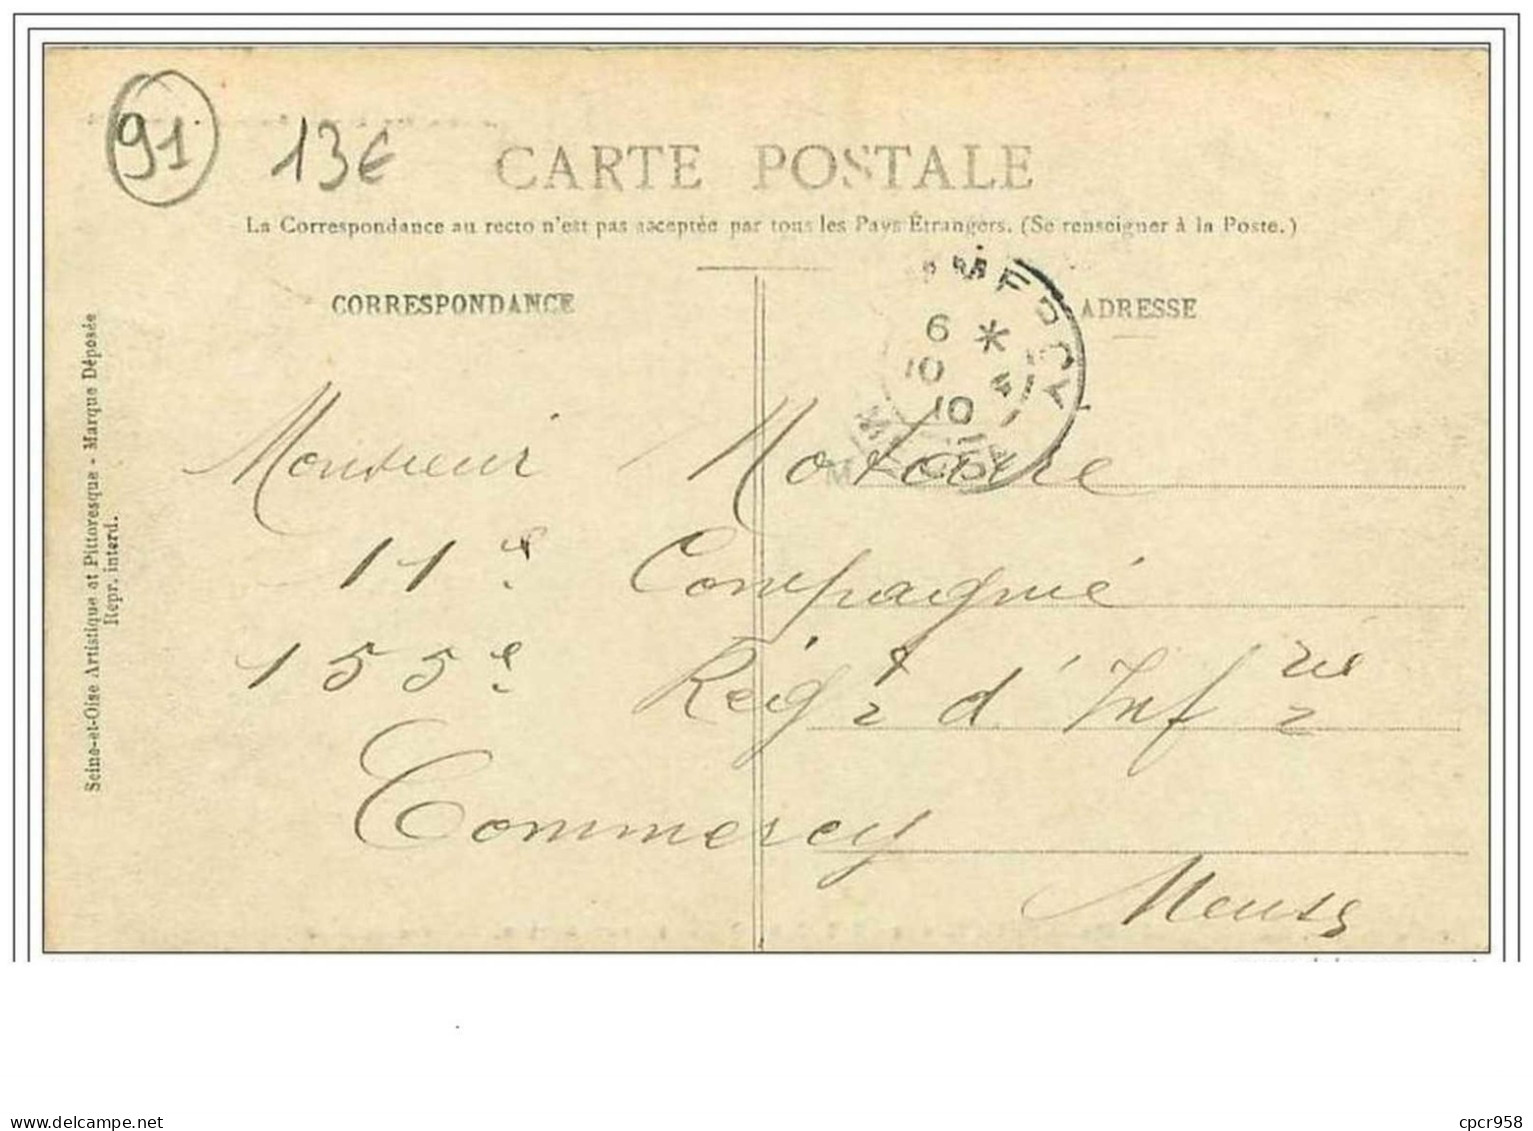 91 13€
CARTE POSTALE
La Correspondance au recto n'est pas acceptée par tous les Pays Étrangers. (Se renseigner à la Poste.)
CORRESPONDANCE
ADRESSE
6 *
10
10
Seine-et-Oise Artistique et Pittoresque - Marque Déposée
Repr. interd.
Monsieur
11e Compagnie
155e Régt d'Infrie
Commercy
Meuse
delcampe.net
cpcr958